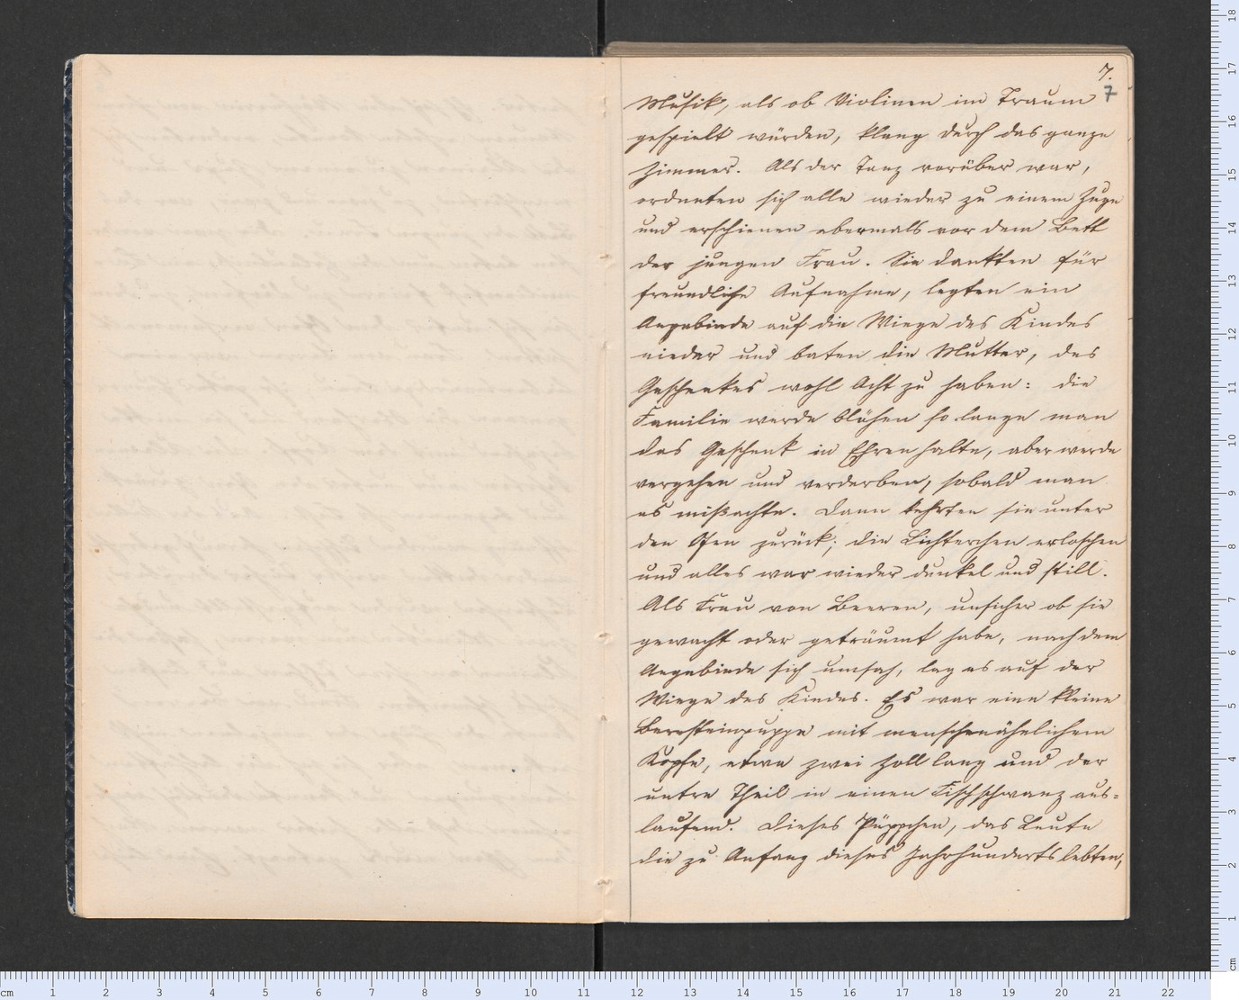 7.
7
Musik, als ob Violinen im Traum
gespielt würden, klang durch das ganze
Zimmer. Als der Tanz vorüber war,
ordneten sich alle wieder zu einem Zuge
und erschienen abermals vor dem Bett
der jungen Frau. Sie dankten für
freundliche Aufnahme, legten ein
Angebinde auf die Wiege des Kindes
nieder und baten die Mutter, des
Geschenkes wohl Acht zu haben: die
Familie werde blühen so lange man
das Geschenk in Ehren halte, aber werde
vergehen und verderben, sobald man
es mißachte. Dann kehrten sie unter
den Ofen zurück; die Lichterchen erloschen
und alles war wieder dunkel und still.
Als Frau von Beeren, unsicher ob sie
gewacht oder geträumt habe, nach dem
Angebinde sich umsah, lag es auf der
Wiege des Kindes. Es war eine kleine
Bernsteinpuppe mit menschenähnlichem
Kopfe, etwa zwei Zoll lang und der
untre Theil in einen Fischschwanz aus=
laufend. Dieses Püppchen, das Leute
die zu Anfang dieses Jahrhunderts lebten,